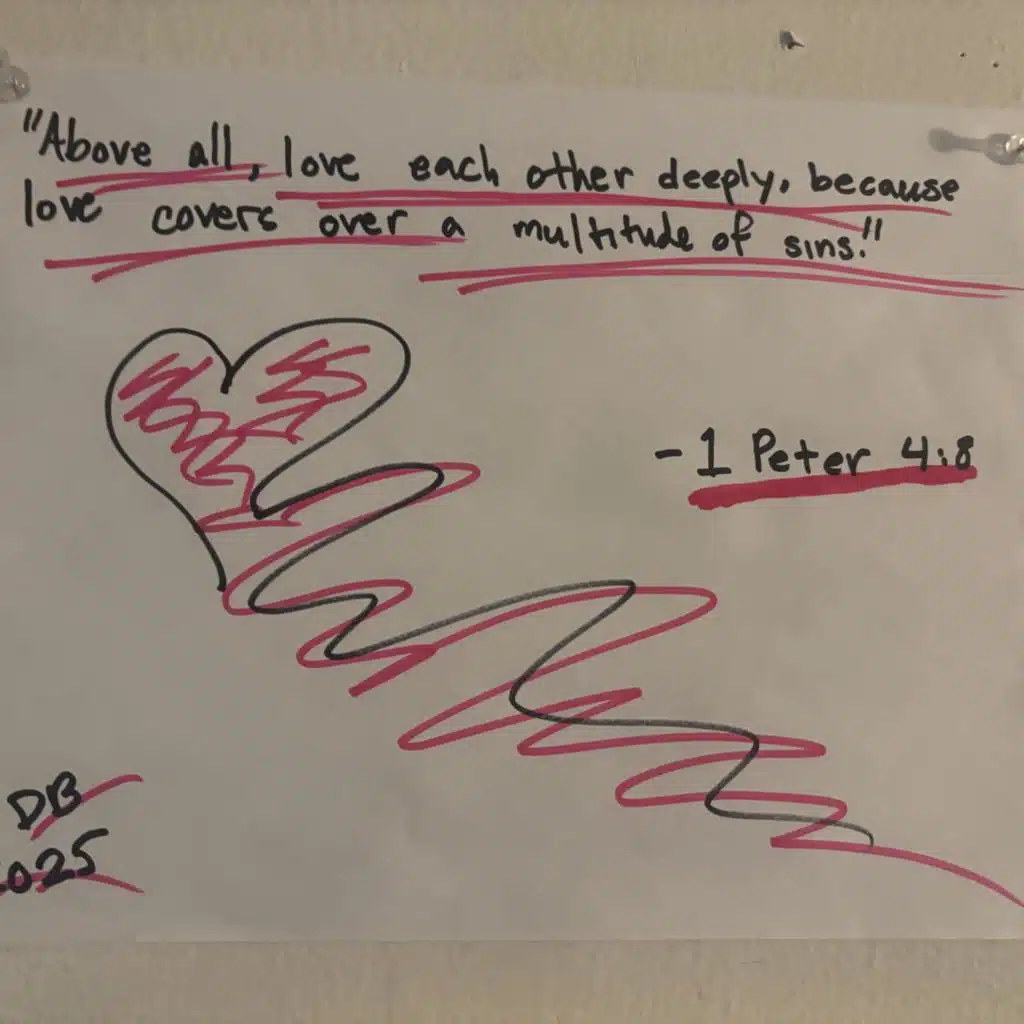 "Above all, love each other deeply, because
love covers over a multitude of sins."
- 1 Peter 4:8
DB
2025